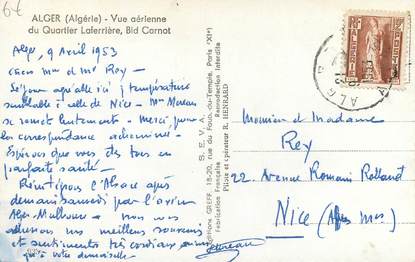 6€
ALGER (Algérie) - Vue aérienne
du Quartier Laferrière, Bld Carnot
Alger, 9 Avril 1953
Chers Mme et Mr Rey -
Séjour agréable ici, température
semblable à celle de Nice - Mme Moreau
se remet lentement - Merci, pour
la correspondance acheminée -
Espérons que vous êtes tous en
parfaite santé -
Réintégrons l'Alsace après
demain samedi par l'avion
Alger-Mulhouse - nous vous
adressons nos meilleurs souvenirs
et sentiments très cordiaux ainsi
qu'à votre demoiselle -
Editions GREFF, 18-20, rue du Faub.-du-Temple, Paris (XIe)
Fabrication Française
Reproduction Interdite
S. E. V. A.
Pilote et opérateur R. HENRARD
ALGER
Monsieur et Madame
Rey
22, Avenue Romain Rolland
Nice (Alpes Mmes)